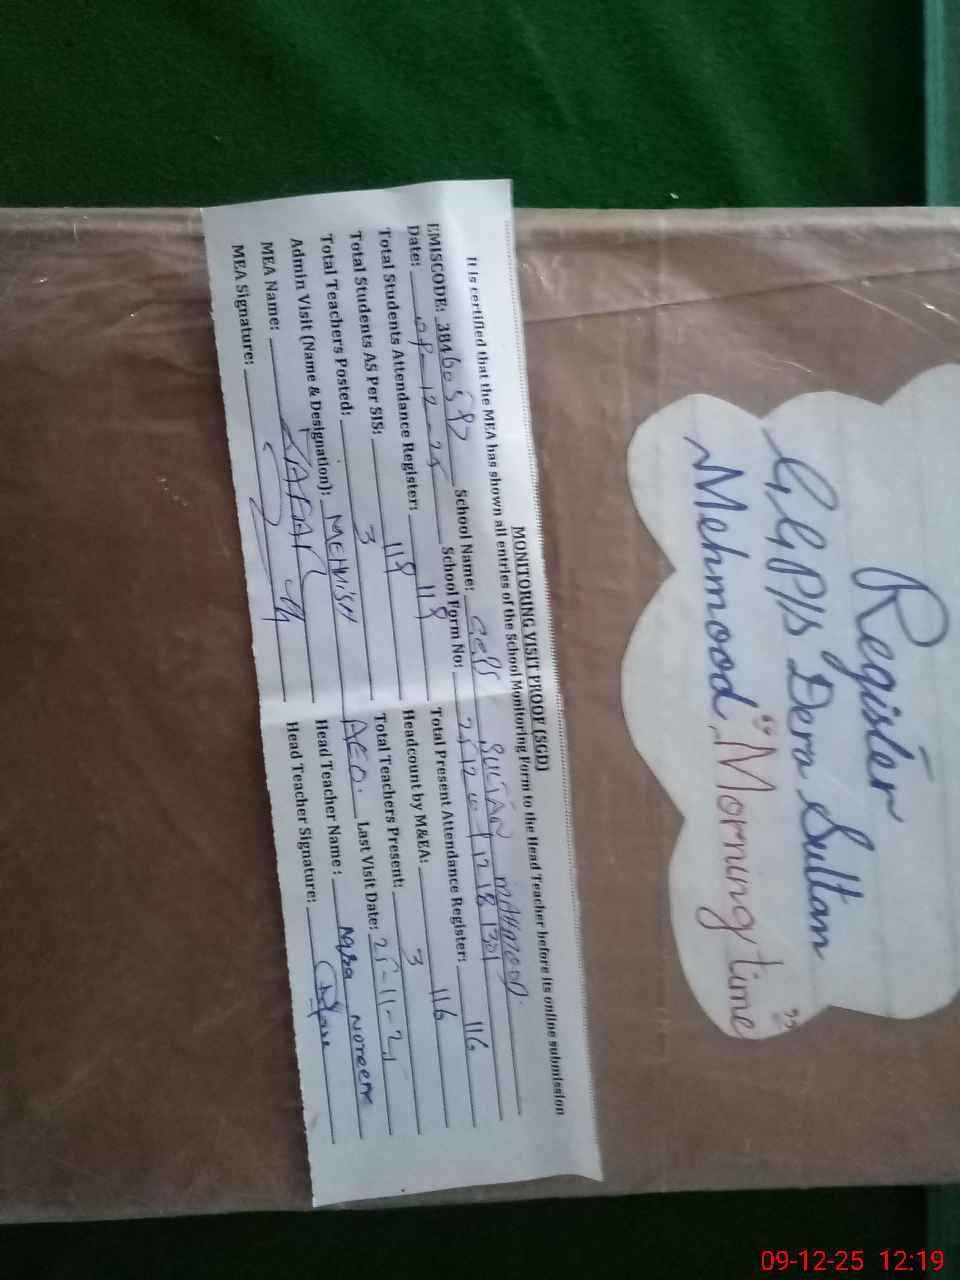 Register
GGP/s Dera Sultan
Mehmood
"Morning time"
MONITORING VISIT PROOF (SGD)
It is certified that the MEA has shown all entries of the School Monitoring Form to the Head Teacher before its online submission
EMISCODE: 384 School Name: SULTAN MAHMOOD.
Date: 09-12-25 School Form No:
Total Students Attendance Register: 118 Total Present Attendance Register: 116
Total Students AS Per SIS: 118 Headcount by M&EA: 116
Total Teachers Posted: 3 Total Teachers Present: 3
Admin Visit (Name & Designation): MEHWISH AEO. Last Visit Date:
MEA Name: Head Teacher Name: Noreen
MEA Signature: Head Teacher Signature:
09-12-25 12:19